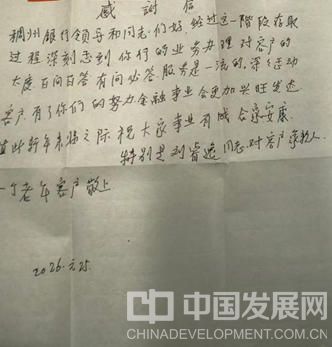 感謝信
稠州银行领导和同志们好，经过这一阶段存取
过程深刻感到你行的业务办理对客户的
大度百问百答有问必答服务是一流的，深受感动
客户，有了你们的努力金融事业会更加兴旺发达
值此新年来临之际祝大家事业有成合家安康。
特别是刘 同志，对客户亲如人
一个老年客户敬上
2026.元.25.
中国发展网
CHINADEVELOPMENT.COM.CN